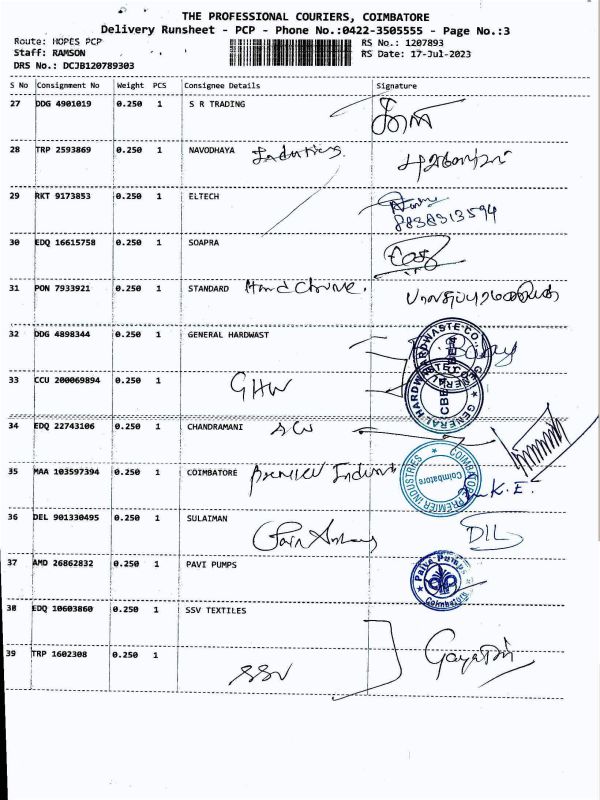 THE PROFESSIONAL COURIERS, COIMBATORE
Delivery Runsheet - PCP - Phone No.:0422-3505555 - Page No.:3
Route: HOPES PCP RS No.: 1207893
Staff: RAMSON RS Date: 17-Jul-2023
DRS No.: DCJB120789303
S No Consignment No Weight PCS Consignee Details Signature
27 DDG 4901019 0.250 1 S R TRADING
28 TRP 2593869 0.250 1 NAVODHAYA Industries
29 RKT 9173853 0.250 1 ELTECH
8838313594
30 EDQ 16615758 0.250 1 SOAPRA
31 PON 7933921 0.250 1 STANDARD
32 DDG 4898344 0.250 1 GENERAL HARDWAST
GENERAL HARDWARE WASTE CO.
33 CCU 200069894 0.250 1 GHW
GENERAL HARDWARE WASTE CO.
34 EDQ 22743106 0.250 1 CHANDRAMANI
35 MAA 103597394 0.250 1 COIMBATORE Premier
COIMBATORE PREMIER INDUSTRIES
Coimbatore
K.E.
36 DEL 901330495 0.250 1 SULAIMAN
DIL
37 AMD 26862832 0.250 1 PAVI PUMPS
Coimbatore
38 EDQ 10603860 0.250 1 SSV TEXTILES
39 TRP 1602308 0.250 1 SSV